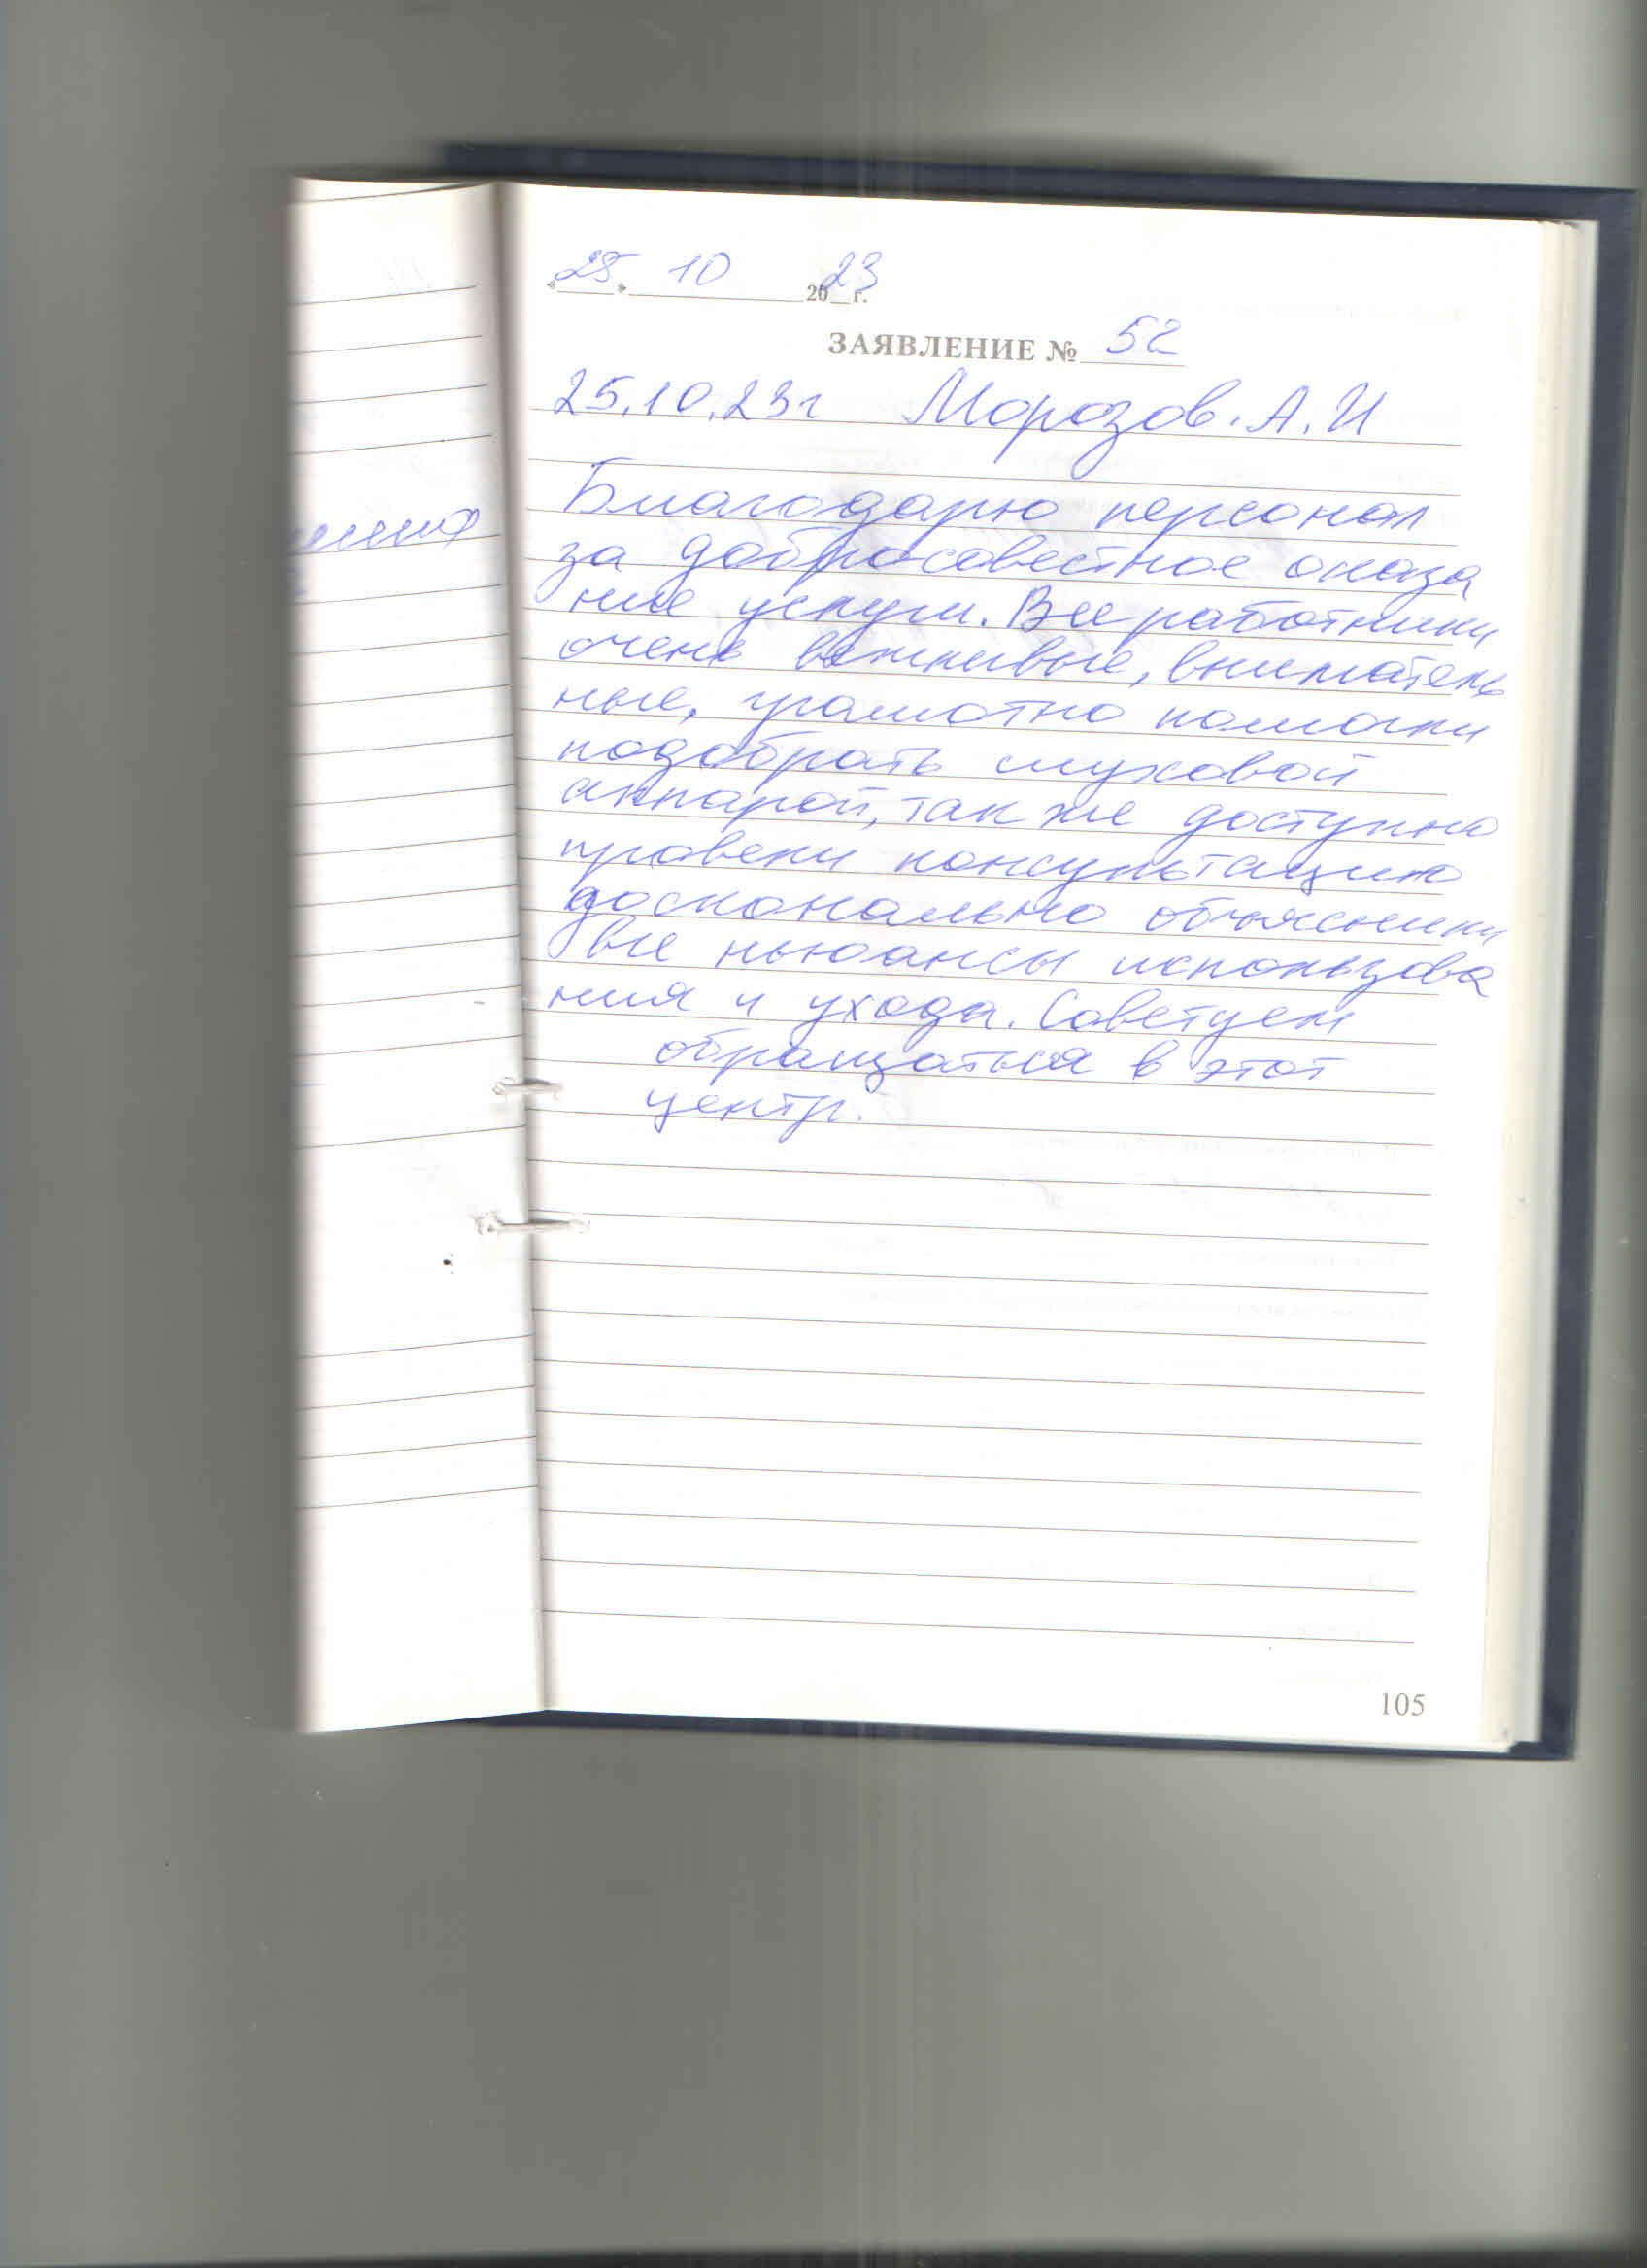 «25» 10 2023 г.
ЗАЯВЛЕНИЕ № 52
25.10.23г Морозов. А. И
Благодарю персонал
за добросовестное оказа
ние услуги. Все работники
очень вежливые, вниматель
ные, грамотно помогли
подобрать слуховой
аппарат, так же доступно
провели консультацию
досконально объяснили
все ньюансы использова
ния и ухода. Советуем
обращаться в этот
центр.
105